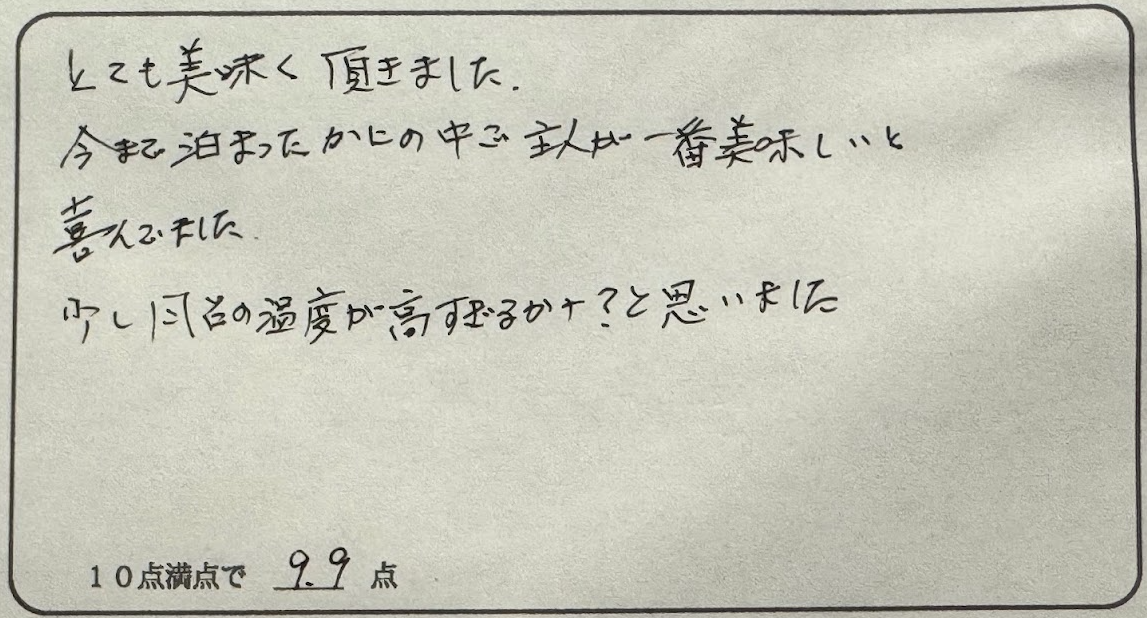 とても美味く頂きました.
今まで泊まったかにの中で主人が一番美味しいと
喜んでました.
少し風呂の温度が高すぎるかナ?と思いました
10点満点で 9.9 点